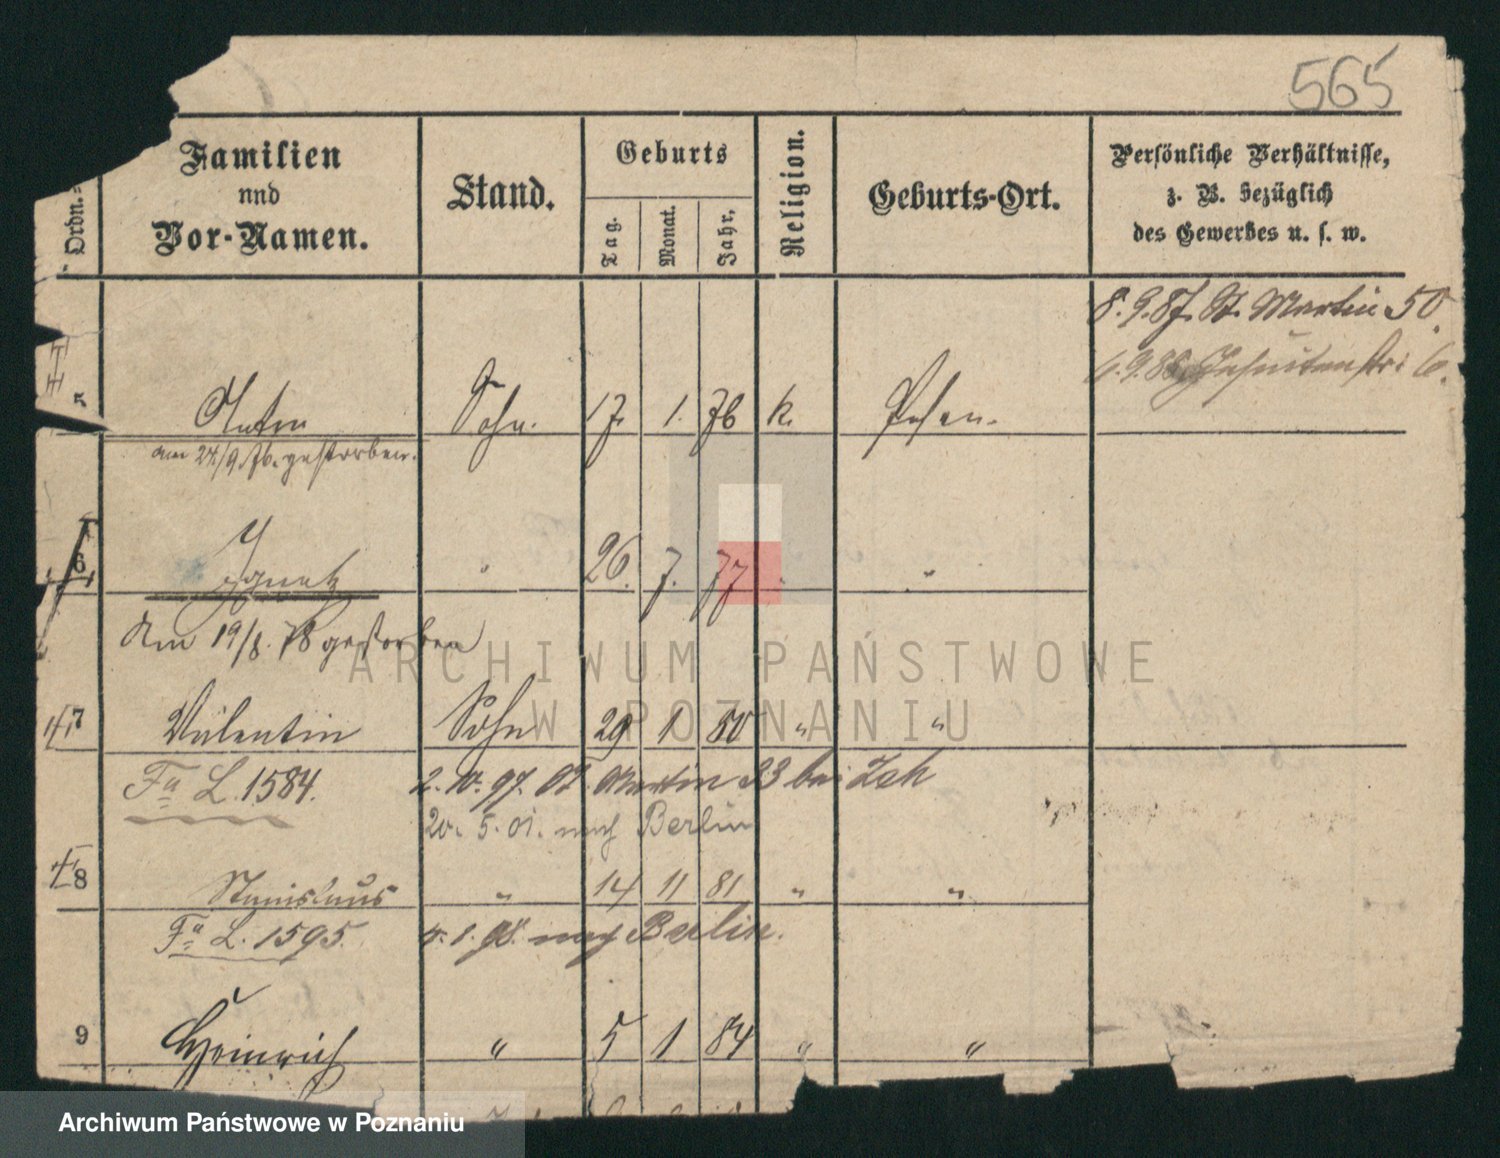 565
Ordn.
Familien
und
Vor-Namen.
Stand.
Geburts
Tag.
Monat.
Jahr.
Religion.
Geburts-Ort.
Persönliche Verhältnisse,
z. B. bezüglich
des Gewerbes u. s. w.
8. 9. 87. St. Martin 50.
9. 88 Jesuitenstr. 6.
5 Anton Sohn. 17. 1. 76 k. Posen.
am 24/9. 76. gestorben.
6 Ignatz " 26. 7. 77 "
Am 19/8. 78 gestorben
ARCHIWUM PAŃSTWOWE
W POZNANIU
7 Valentin Sohn 29 1 80 " "
Fa L. 1584. 2. 10. 97. St. Martin 33 bei
20. 5. 01. nach Berlin
8 Stanislaus " 14 11 81 " "
Fa L. 1595. 4. 1. 98. nach Berlin.
9 Heinrich " 5 1 84 " "
Archiwum Państwowe w Poznaniu